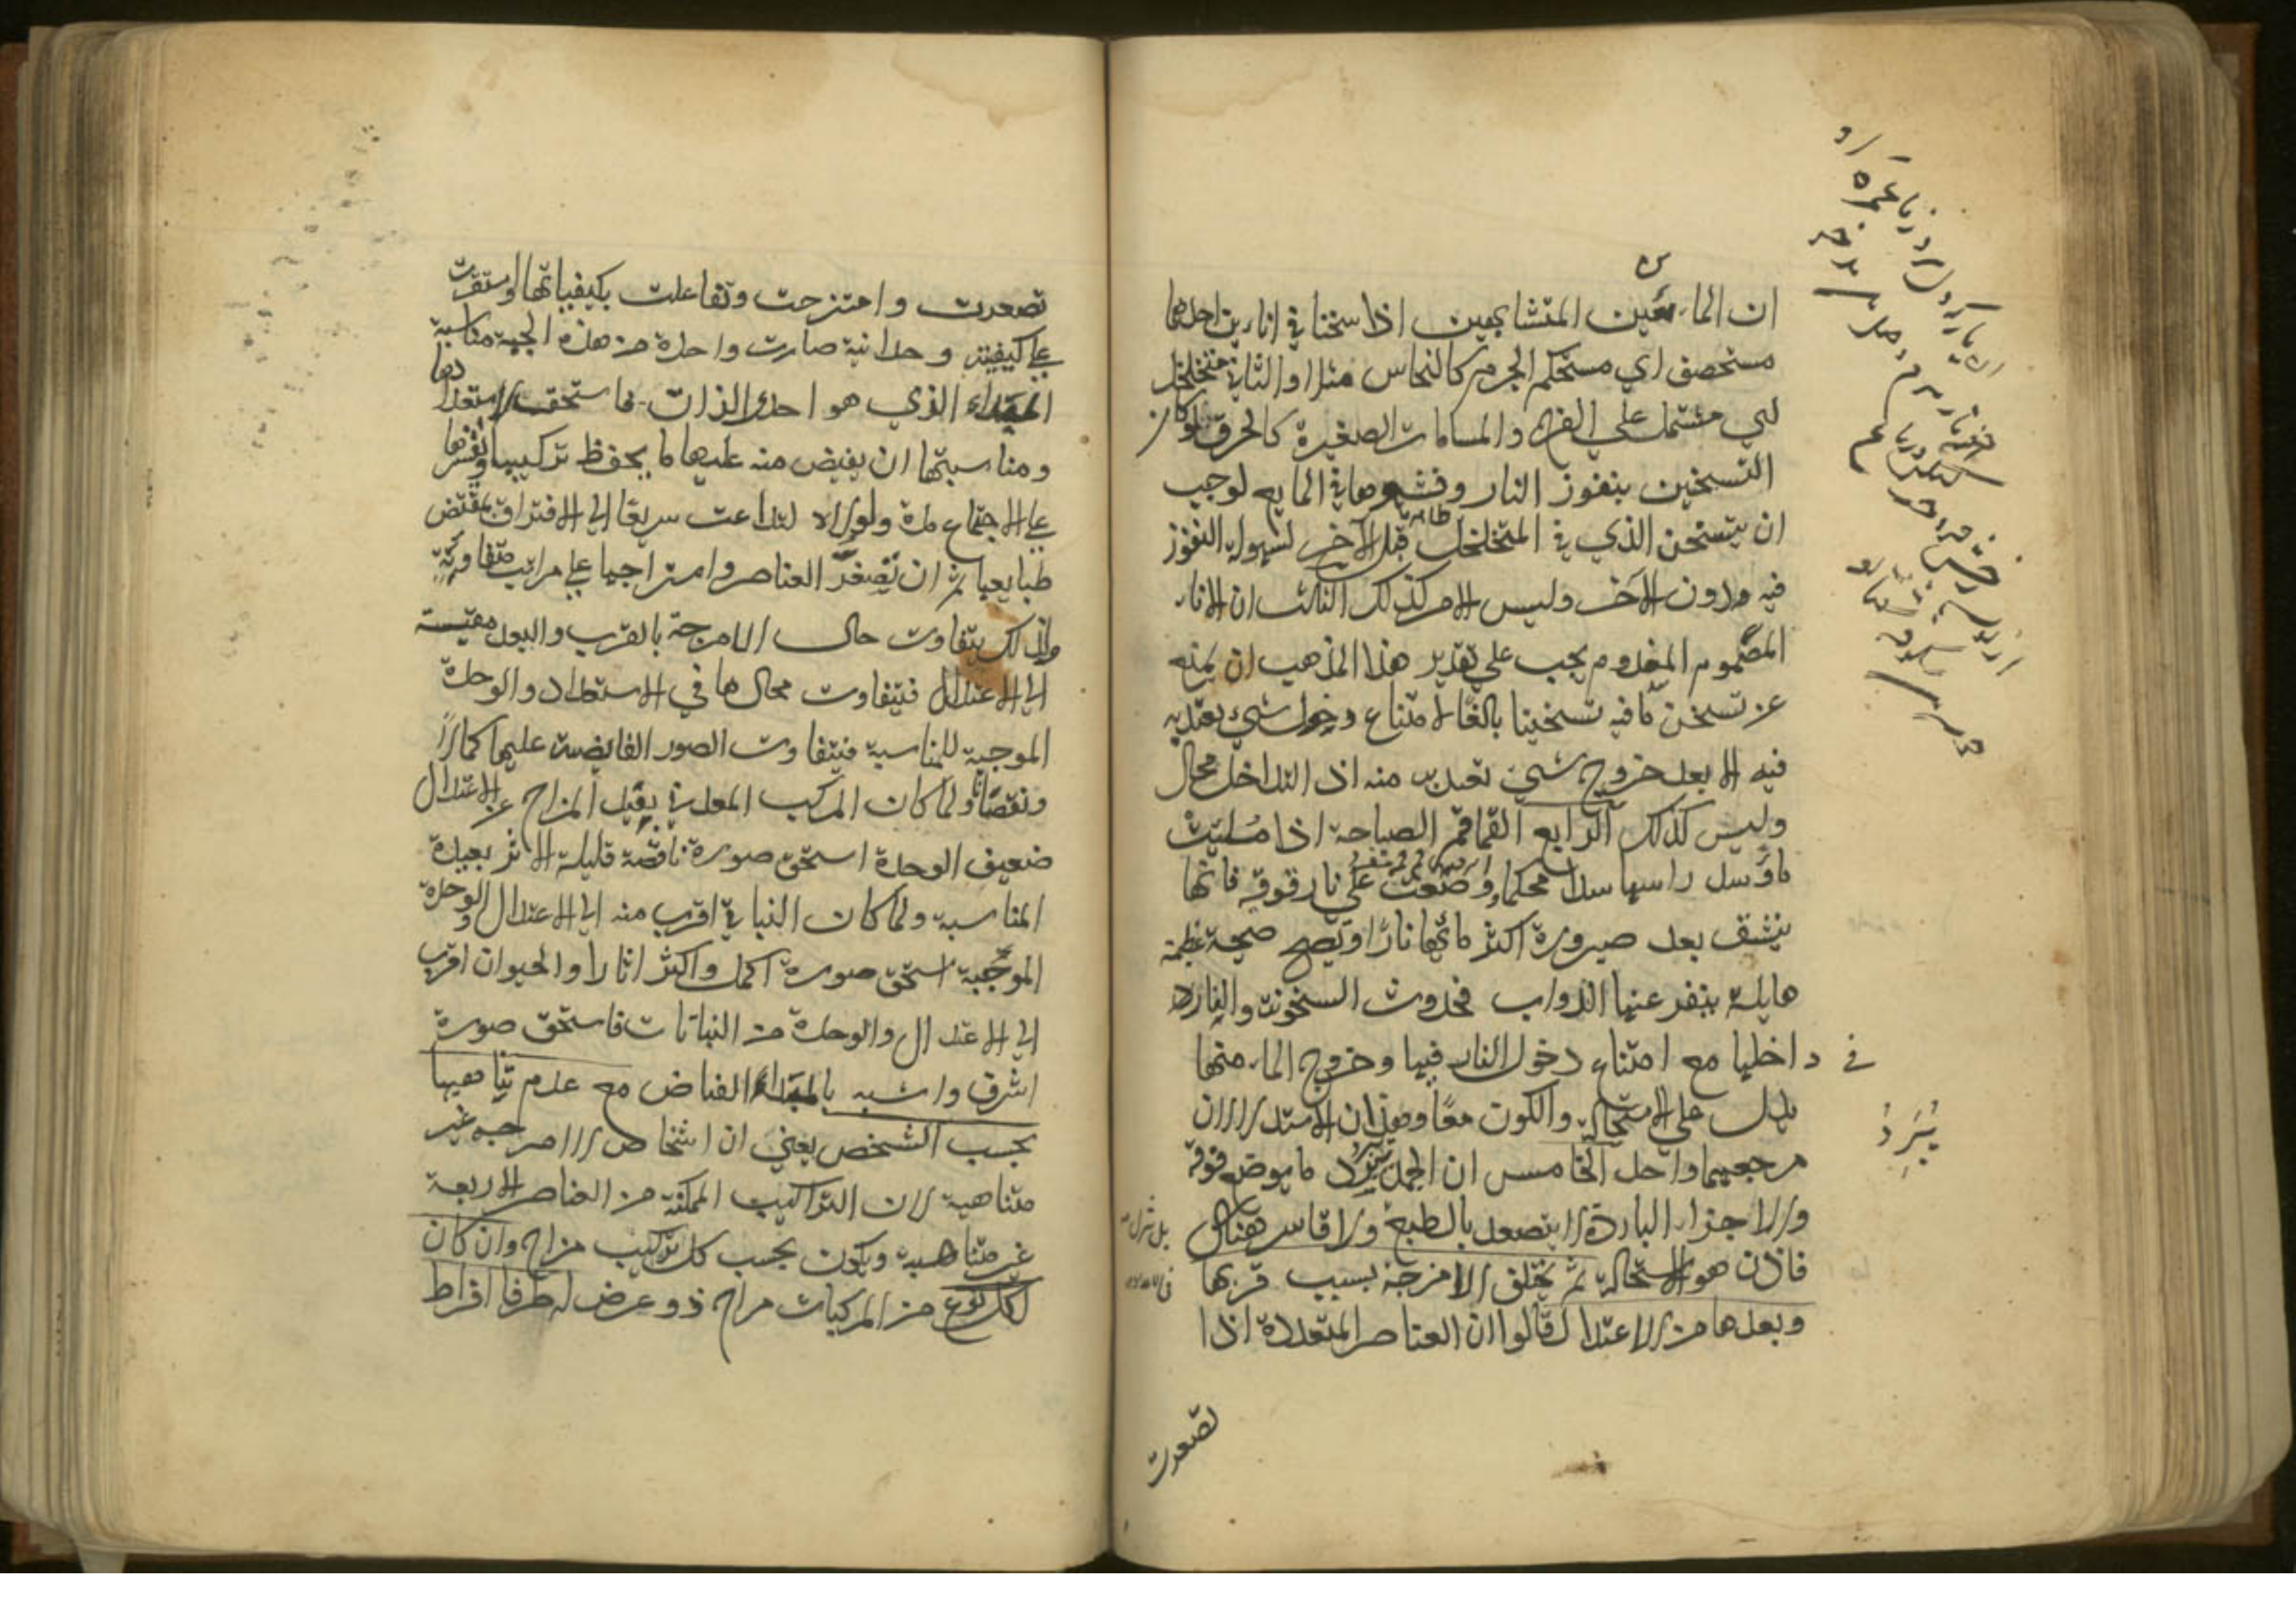 ان المايعين المتشابهين اذا سخنا في انائين احدهما
مستحصف اي مستحكم الجرم كالنحاس مثلا او الثاني متخلخل
اي مشتمل على الفرج والمسامات الصغيرة كالخزف فلو كان
التسخين بنفوذ النار وفشوها في المايع لوجب
ان يتسخن الذي في المتخلخل قبل الآخر لسهولة النفوذ
فيه دون الآخر وليس الامر كذلك الثالث ان الاناء
المصموم المفدوم يجب على تقدير هذا المذهب ان يمنع
عن تسخن ما فيه تسخينا بالغا لامتناع دخول شيء يعتد به
فيه الا بعد خروج شيء يعتد به منه اذ التداخل محال
وليس كذلك الرابع القماقم الصياحة اذا ملئت
ماء وسد راسها سدا محكما وضعت على نار قوية فانها
ينشق بعد صيرورة اكثر مائها نارا وتصيح صيحة عظيمة
هايلة ينفر عنها الدواب فحدوث السخونة والنار
في داخلها مع امتناع دخول النار فيها وخروج الماء منها
يدل على الاستحالة والكون معا وهذان الاستدلالان
مرجعهما واحد الخامس ان الجمد يبرد ما يوضع فوقه
والاجزاء الباردة لا يتصعد بالطبع ولا قاسر هناك
فاذن هو الاستحالة ثم يختلف الامزجة بسبب قربها
وبعدها من الاعتدال قالوا ان العناصر المتعددة اذا
تصغرت
يُبَرِدُ
تصغرت وامتزجت وتفاعلت بكيفياتها واستقرت
على كيفية وحدانية صارت واحدة من هذه الجهة مناسبة
المبداء الذي هو احدي الذات فاستحقت لاستعدادها
ومناسبتها ان يفيض منه عليها ما يحفظ تركيبها ويقسرها
على الاجتماع مدة ولولاه لتداعت سريعا الى الافتراق بمقتضى
طبايعها ثم ان تصغر العناصر وامتزاجها على مراتب متفاوتة
ولذلك يتفاوت حال الامزجة بالقرب والبعد مقيسة
الى الاعتدال فيتفاوت محالها في الاستعداد والوحدة
الموجبة للمناسبة فيتفاوت الصور الفايضة عليها كمالا
ونقصانا ولما كان المركب المعدني بعيد المزاج عن الاعتدال
ضعيف الوحدة استحق صورة ناقصة قليلة الاثر بعيدة
المناسبة ولما كان النباتي اقرب منه الى الاعتدال والوحدة
الموجبة استحق صورة اكمل واكثر اثارا والحيوان اقرب
الى الاعتدال والوحدة من النباتات فاستحق صورة
اشرف واشبه بالمبداء الفياض مع عدم تناهيها
بحسب الشخص يعني ان اشخاص الامزجة غير
متناهية لان التراكيب الممكنة من العناصر الاربعة
غير متناهية ويكون بحسب كل تركيب مزاج وان كان
لكل نوع من المركبات مزاج ذو عرض له طرفا افراط